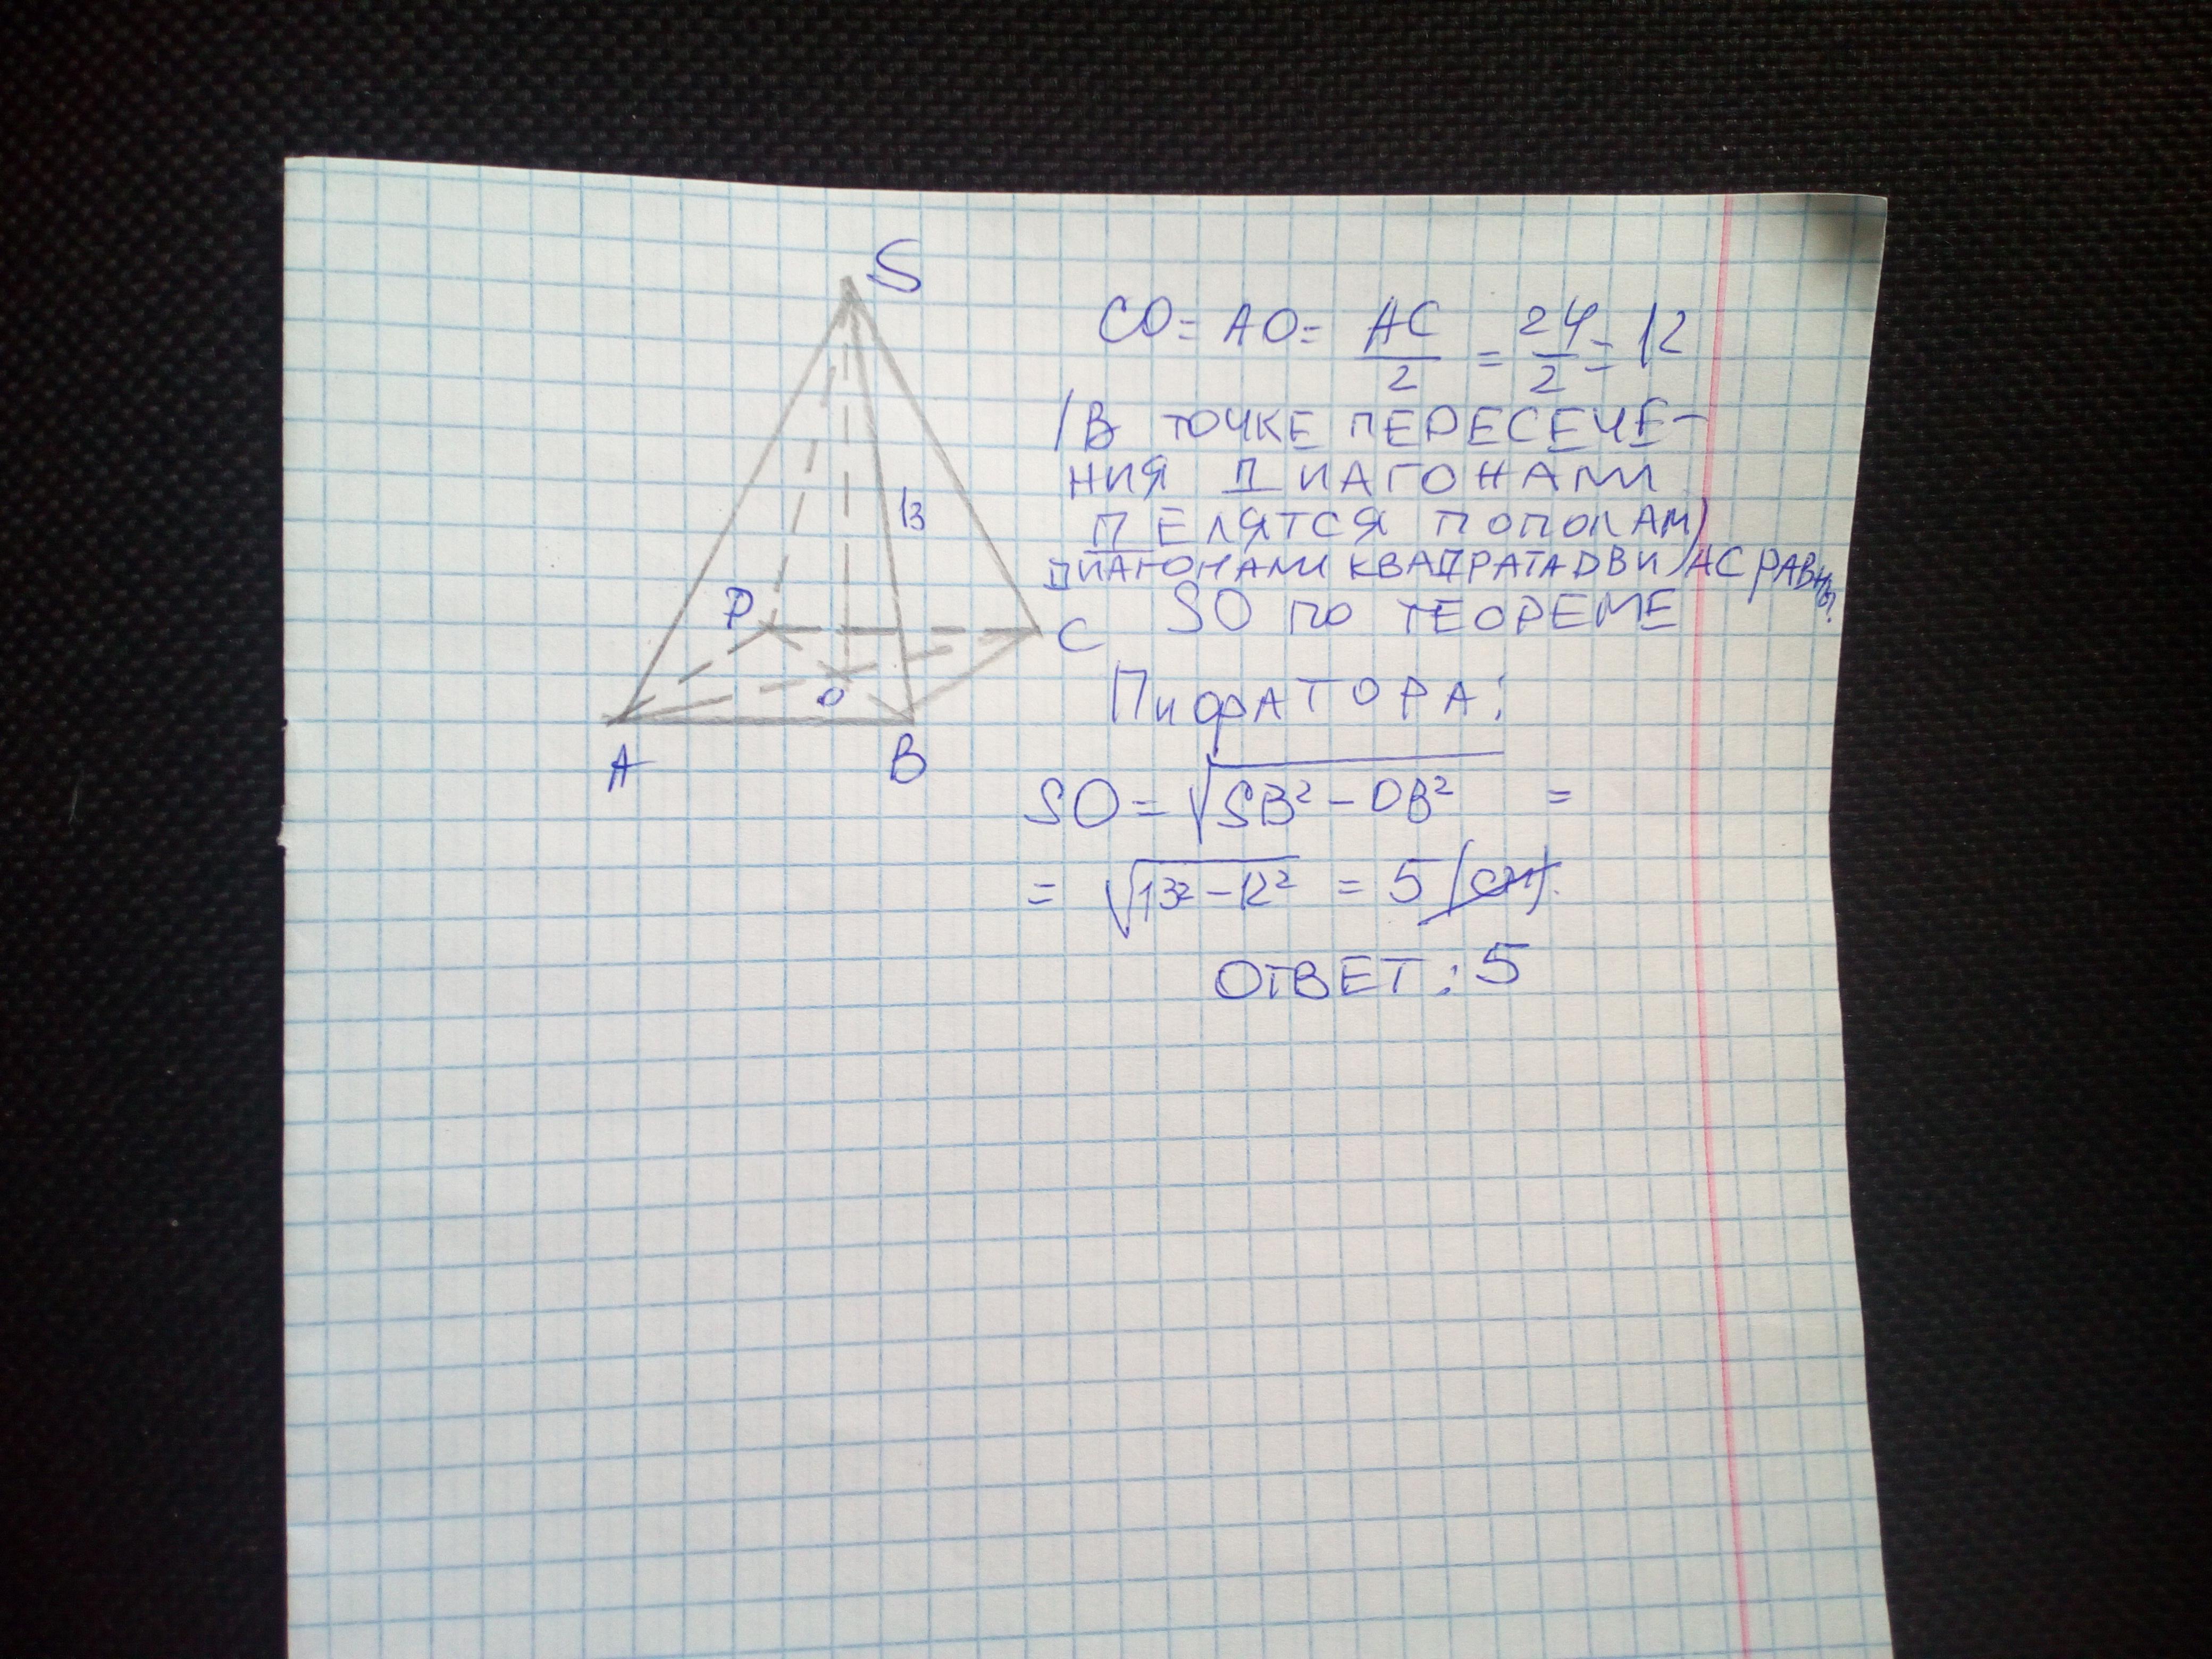 S
CO = AO = AC/2 = 24/2 = 12
/В ТОЧКЕ ПЕРЕСЕЧЕ-
НИЯ ДИАГОНАЛИ
ДЕЛЯТСЯ ПОПОЛАМ/
ДИАГОНАЛИ КВАДРАТА DB И AC РАВНЫ.
SO ПО ТЕОРЕМЕ
ПИФАГОРА:
SO = √SB² - OB² =
= √13² - 12² = 5 (см).
ОТВЕТ: 5
13
D
C
O
A
B